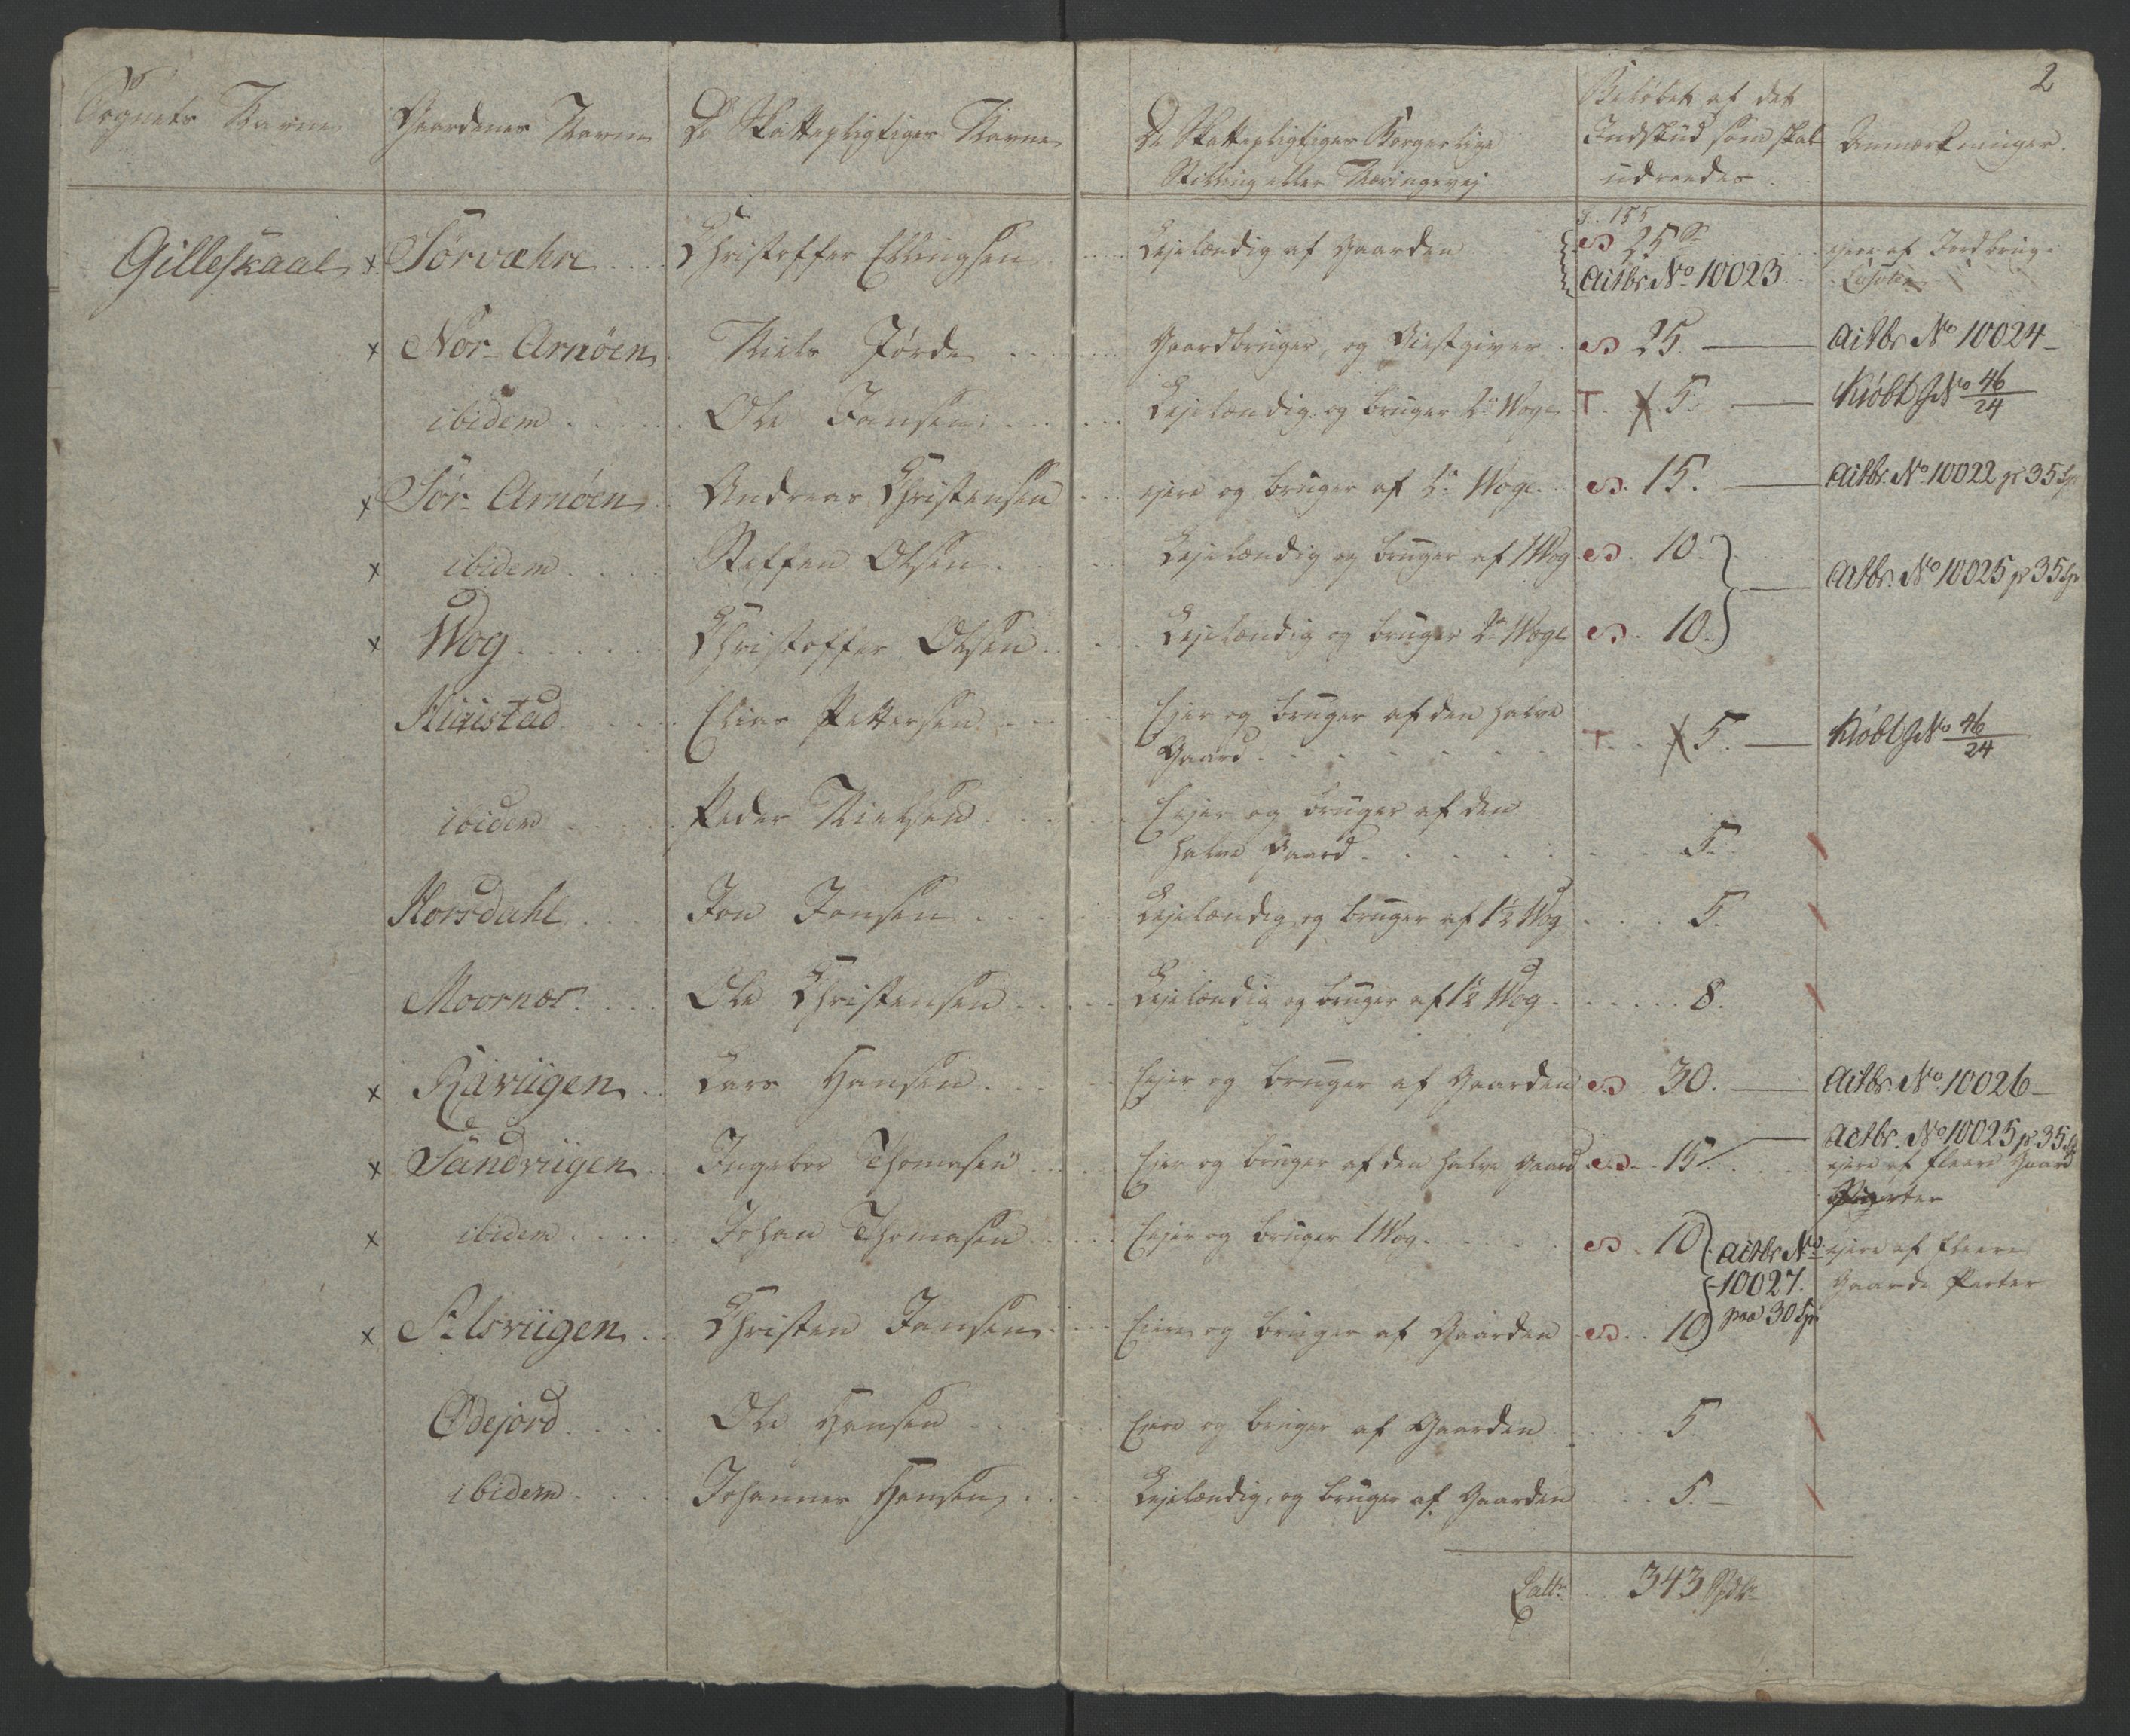 2
Sognets Navne Gaardenes Navne De Skattepligtiges Navne De Skattepligtiges Borgerlige Stilling eller Næringsvej Beløbet af det Indskud som skal udreedes Anmærkninger.
155
Gilleskaal x Sörvæhre Christoffer Ellingsen Lejelændig af Gaarden S 25 Actbr. No 10023 ejere af Jord brug
x Nör-Arnöen Niels Jörde Gaardbruger, og Giestgiver S 25. Actbr No 10024
ibidem Ole Jansen Lejelændig og bruger 2 Woge T. X 5. Kiöbt J No 46/24
x Sör-Arnöen Andreas Christensen ejere og bruger af 2 Woge S. 15. Actbr. No 10022 p 35 Sp
x ibidem Steffen Olsen Lejelændig og bruger af 1 Wog S. 10. Actbr. No 10025 p 35 Sp
x Wog Christoffer Olsen Lejelændig og bruger 2 Woge S. 10.
Kiaistad Elias Pettersen Ejer og bruger af den halve
Gaard T. X 5. Kiöbt J No 46/24
ibidem Peder Nielsen Ejer og bruger af den
halve Gaard 5.
Horsdahl Jon Jonsen Lejelændig og bruger af 1½ Wog 5.
Moornæs Ole Christensen Lejelændig og bruger af 1½ Wog 8.
x Kiærviigen Lars Hansen Ejer og bruger af Gaarden S. 30. Actbr. No 10026
x Sandviigen Ingebor Thomasen Ejer og bruger af den halve Gaard S. 15. Actbr. No 10025 p 35 Sp
ejere af fleere Gaard
Parter
x ibidem Johan Thomasen Ejer og bruger 1 Wog S. 10. Actbr No
10027.
paa 30 Sp ejere af fleere
Gaarde Parter
x Elsviigen Christen Jansen Ejere og bruger af Gaarden S. 10
Ödejord Ole Hansen Ejere og bruger af Gaarden 5.
ibidem Johannes Hansen Lejelændig, og bruger af Gaarden 5.
Lat. 343 Spdlr